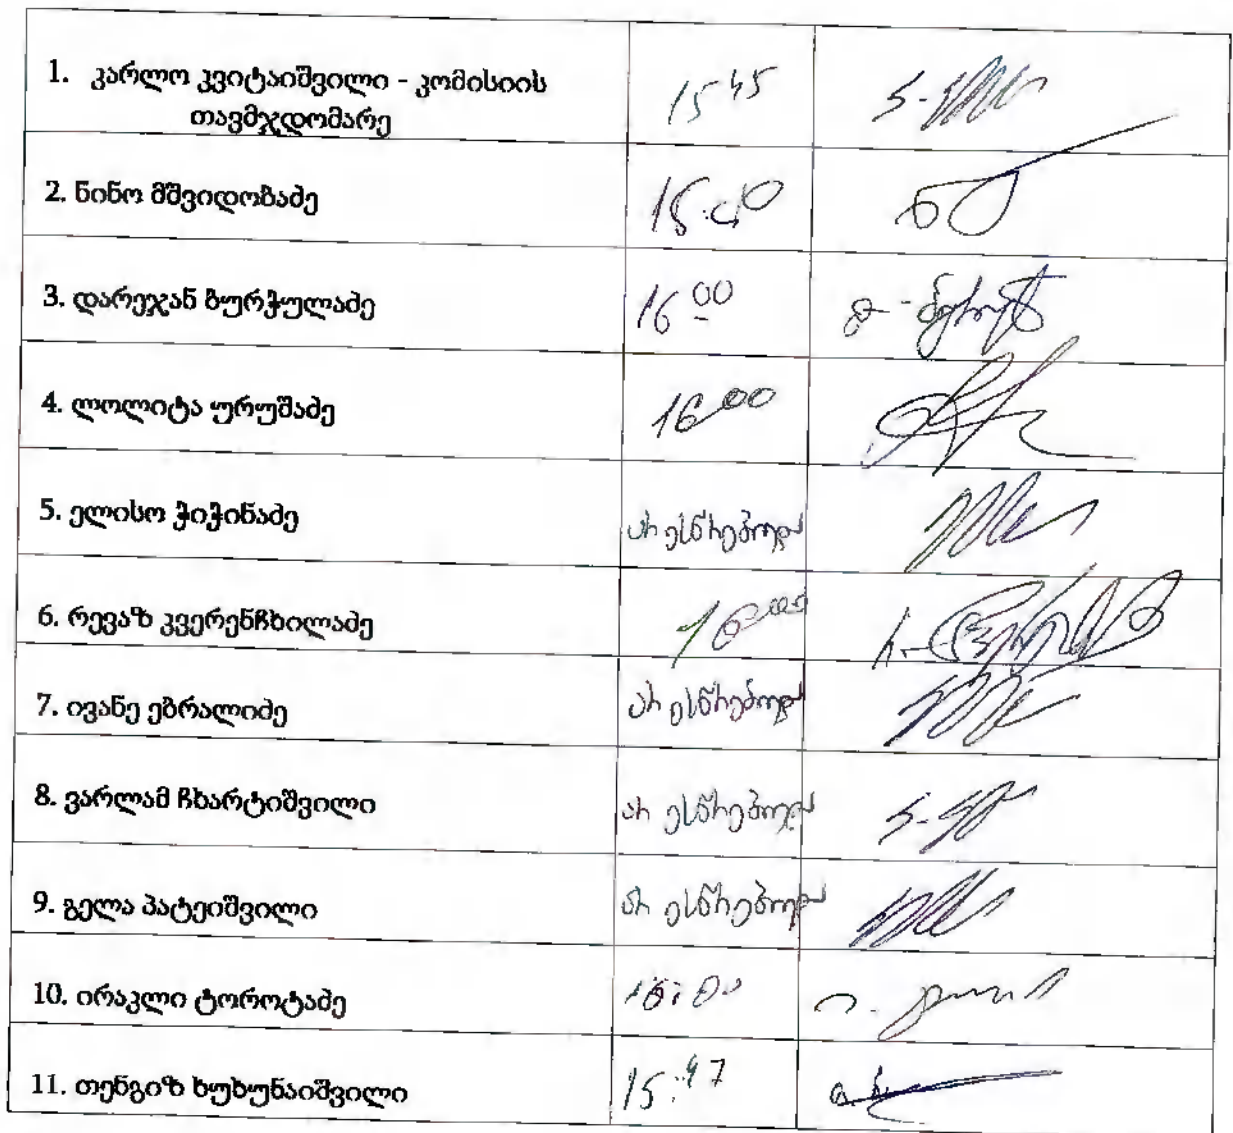 1. კარლო კვიტაიშვილი - კომისიის 15 45
თავმჯდომარე
2. ნინო მშვიდობაძე
3. დარეჯან ბურჭულაძე 16 00
4. ლოლიტა ურუშაძე 16 00
5. ელისო ჭიჭინაძე არ ესწრებოდა
6. რევაზ კვერენჩხილაძე 16 00
7. ივანე ებრალიძე არ ესწრებოდა
8. ვარლამ ჩხარტიშვილი არ ესწრებოდა
9. გელა პატეიშვილი არ ესწრებოდა
10. ირაკლი ტოროტაძე
11. თენგიზ ხუხუნაიშვილი 15:47